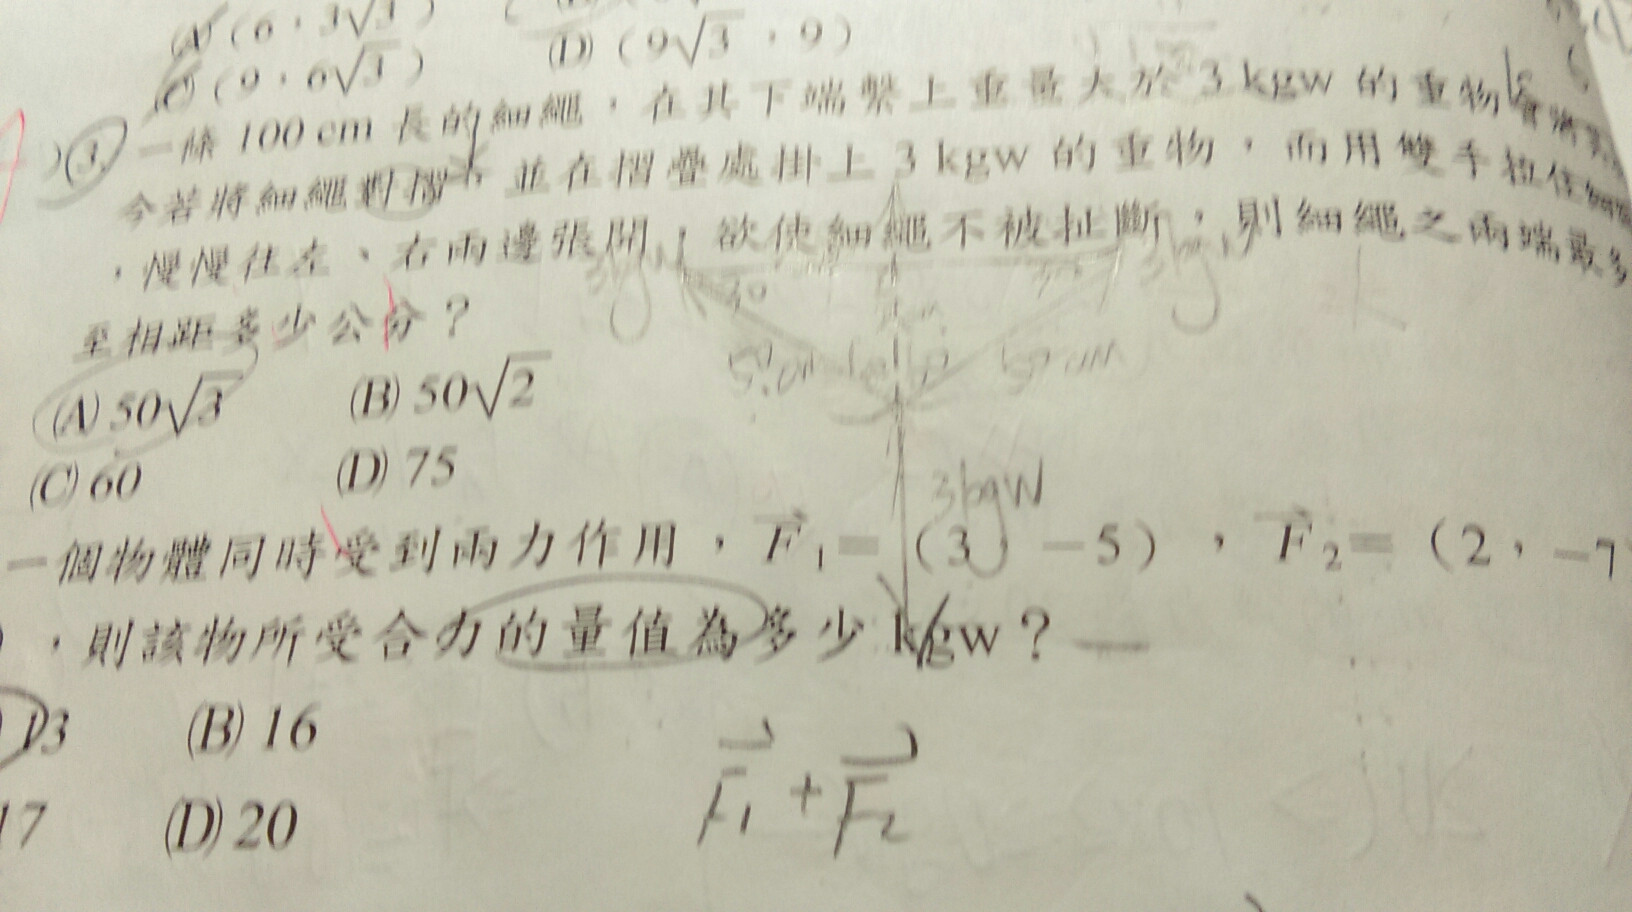 (A) (6，3√3)
(C) (9，6√3) (D) (9√3，9)
3. 一條 100 cm 長的細繩，在其下端繫上重量大於 3 kgw 的重物
今若將細繩對摺，並在摺疊處掛上 3 kgw 的重物，而用雙手拉住
，慢慢往左、右兩邊張開，欲使細繩不被扯斷，則細繩之兩端最多
至相距多少公分？
50cm 50cm
(A) 50√3 (B) 50√2
(C) 60 (D) 75
3kgw
一個物體同時受到兩力作用，F₁=(3，-5)，F₂=(2，-7
，則該物所受合力的量值為多少 kgw？
13 (B) 16
F₁+F₂
17 (D) 20